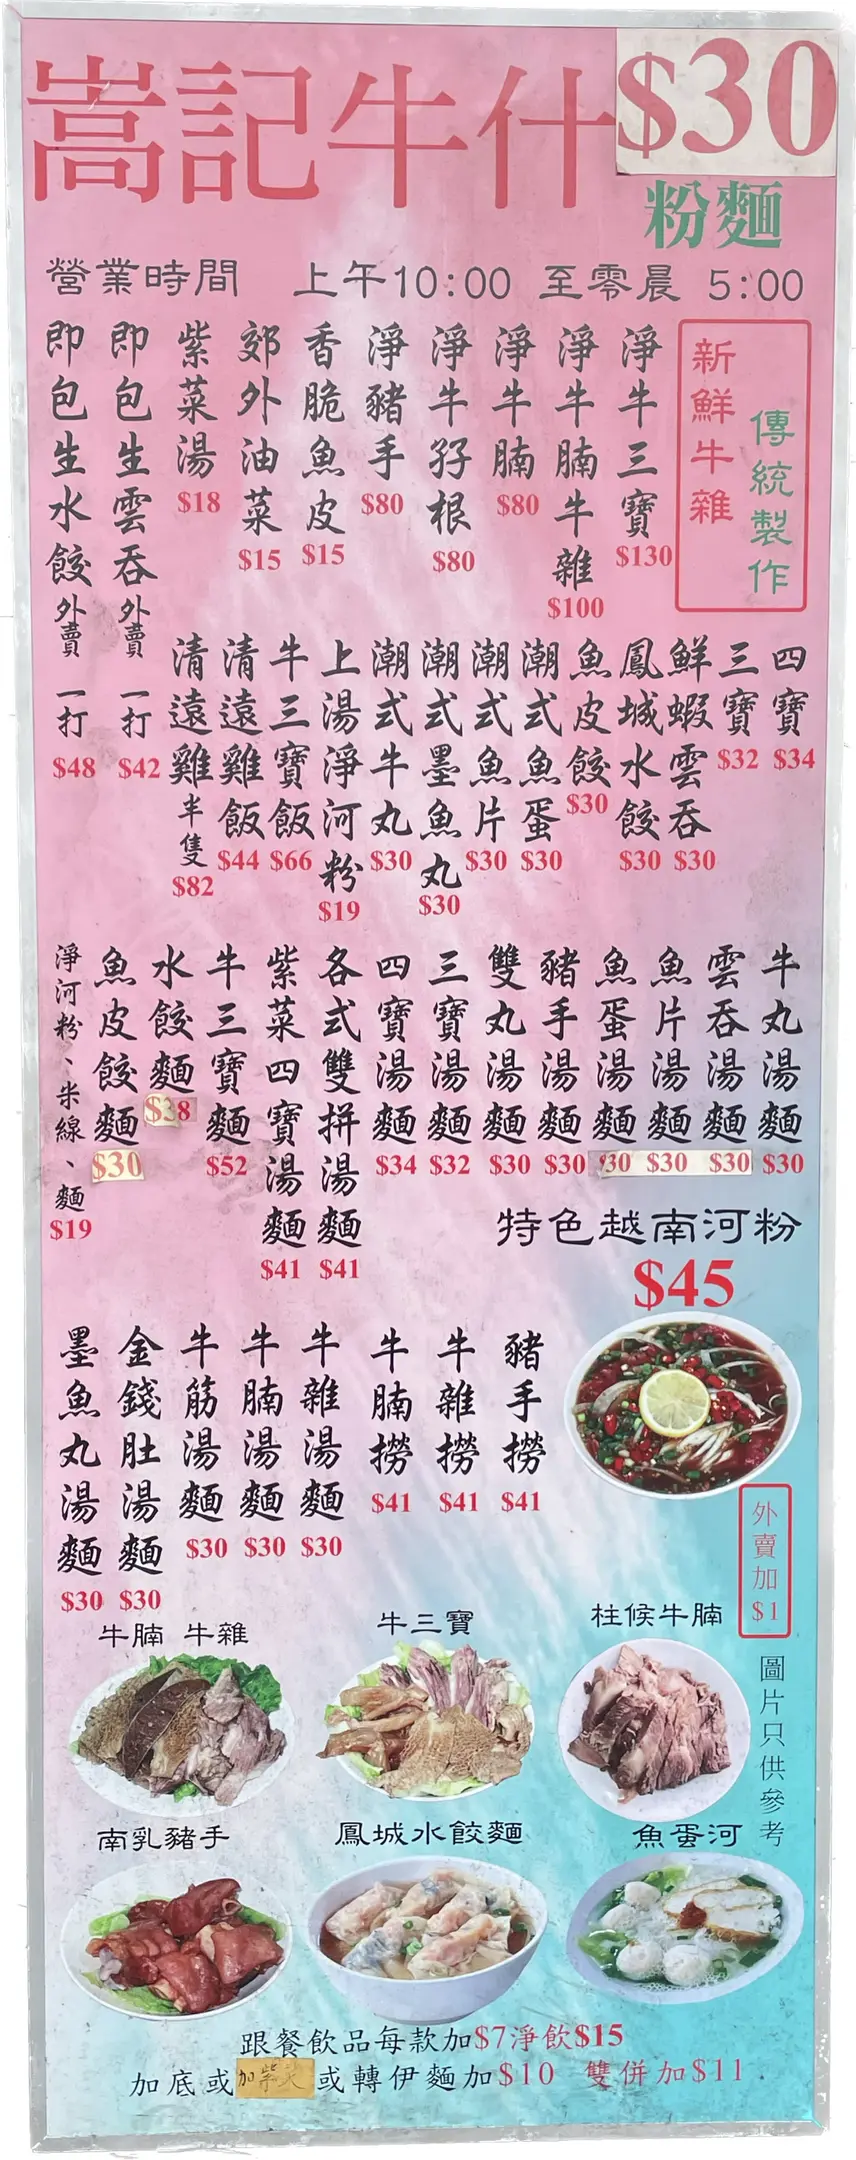 嵩記牛什 $30
粉麵
營業時間 上午10:00 至零晨 5:00
新鮮牛雜
傳統製作
淨牛三寶 $130
淨牛腩牛雜 $100
淨牛腩 $80
淨牛孖根 $80
淨豬手 $80
香脆魚皮 $15
郊外油菜 $15
紫菜湯 $18
即包生雲吞外賣一打 $42
即包生水餃外賣一打 $48
四寶 $34
三寶 $32
鮮蝦雲吞 $30
鳳城水餃 $30
魚皮餃 $30
潮式魚蛋 $30
潮式魚片 $30
潮式墨魚丸 $30
潮式牛丸 $30
上湯淨河粉 $19
牛三寶飯 $66
清遠雞飯 $44
清遠雞半隻 $82
牛丸湯麵 $30
雲吞湯麵 $30
魚片湯麵 $30
魚蛋湯麵 $30
豬手湯麵 $30
雙丸湯麵 $30
三寶湯麵 $32
四寶湯麵 $34
各式雙拼湯麵 $41
紫菜四寶湯麵 $41
牛三寶麵 $52
水餃麵 $38
魚皮餃麵 $30
淨河粉、米線、麵 $19
特色越南河粉
$45
豬手撈 $41
牛雜撈 $41
牛腩撈 $41
牛雜湯麵 $30
牛腩湯麵 $30
牛筋湯麵 $30
金錢肚湯麵 $30
墨魚丸湯麵 $30
外賣加$1
圖片只供參考
牛腩 牛雜
牛三寶
柱候牛腩
南乳豬手
鳳城水餃麵
魚蛋河
跟餐飲品每款加$7淨飲$15
加底或加紫菜或轉伊麵加$10 雙併加$11